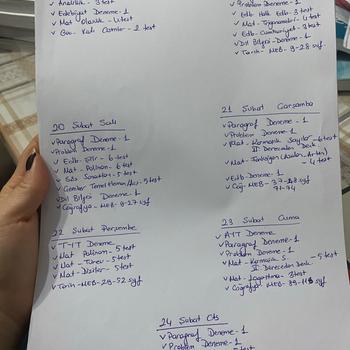 ✓ Analitik - 3 test
✓ Edebiyat Deneme - 1
✓ Mat Olasılık - 4 test
✓ Geo - Katı Cisimler - 2 test
✓ Problem Deneme - 1
✓ Edb Halk Edb - 3 test
✓ Mat - Trigonometri - 4 test
✓ Edb - Cumhuriyet - 3 test
✓ Dil Bilgisi - Deneme - 1
✓ Tarih - MEB - 9-28 syf
20 Şubat Salı
✓ Paragraf Deneme - 1
✓ Problem Deneme - 1
✓ Edb - Şiir - 6 test
✓ Mat - Polinom - 6 test
✓ Söz Sanatları - 5 test
✓ Çember Temel Eleman, Açı - 5 test
✓ Dil Bilgisi Deneme - 1
✓ Coğrafya - MEB - 9-27 syf
21 Şubat Çarşamba
✓ Paragraf Deneme - 1
✓ Problem Deneme - 1
✓ Mat - Karmaşık Sayılar - 6 test
II. Dereceden Denk
✓ Edb - Deneme - 1
✓ Coğ. MEB - 37-48 syf
71-74
22 Şubat Perşembe
✓ TYT Deneme
✓ Mat Polinom - 5 test
✓ Mat - Türev - 5 test
✓ Mat - Diziler - 5 test
✓ Tarih - MEB - 29-52 syf
23 Şubat Cuma
✓ AYT Deneme
✓ Paragraf Deneme - 1
✓ Problem Deneme - 1
✓ Mat - Karmaşık S. - 5 test
II. Dereceden Denk
✓ Mat - Logaritma - 3 test
✓ Coğrafya MEB - 89-113 syf
24 Şubat Cts
✓ Paragraf Deneme - 1
✓ Problem Deneme - 1